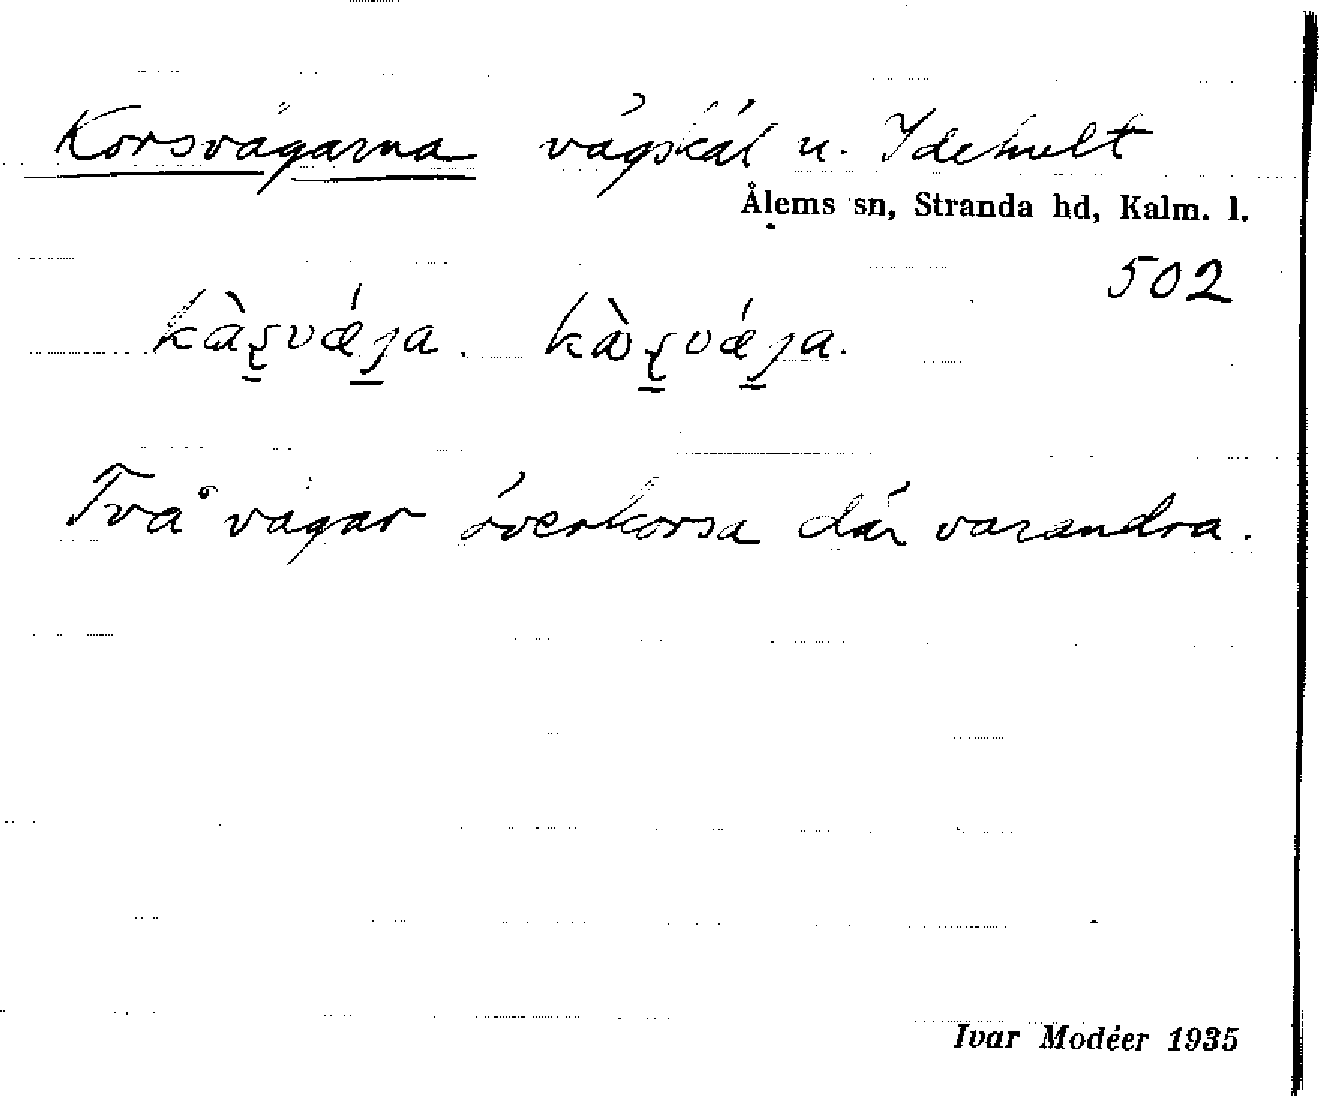 Korsvägarna vägskäl u. Idehult
Ålems sn, Stranda hd, Kalm. l.
502
kàʂvǽja. kòʂvǽja.
Två vägar överkorsa där varandra.
Ivar Modéer 1935